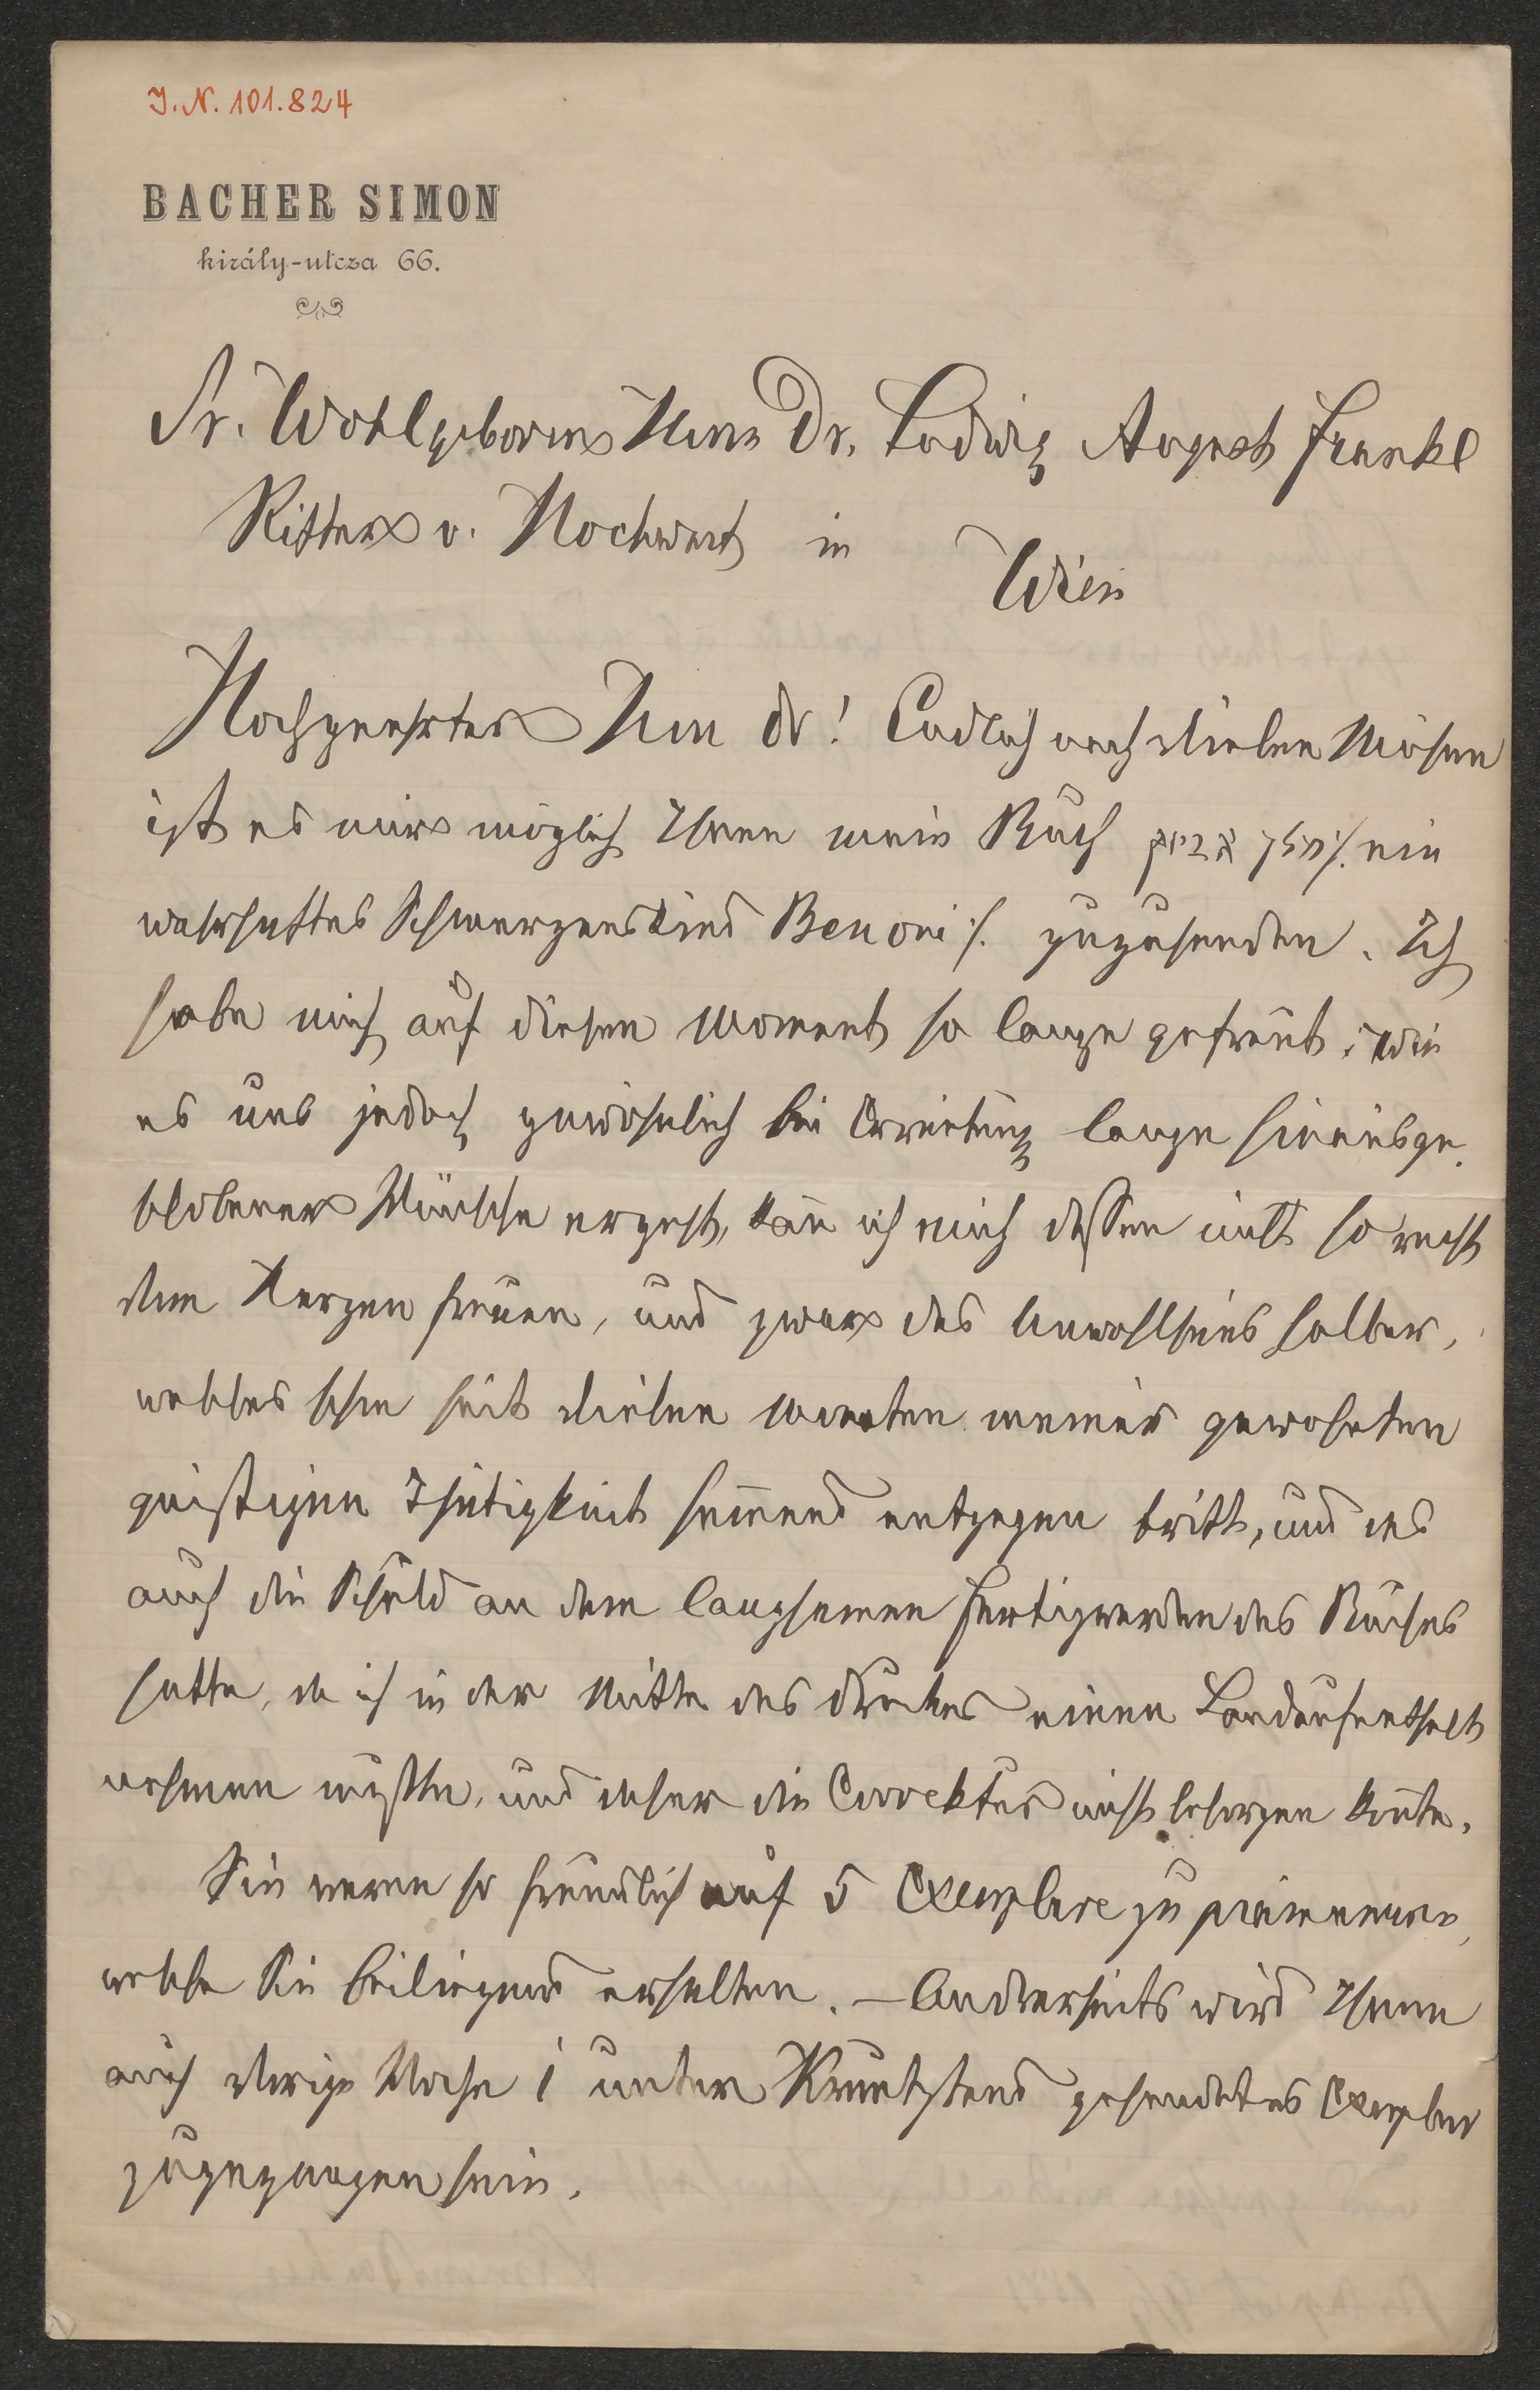 J. N. 101.824
BACHER SIMON
király-utcza 66.
Sr. Wohlgeboren Herrn Dr. Ludwig August Frankl
Ritter v. Hochwart in
Wien
Hochgeehrter Herr Dr! Endlich nach vielen Mühen
ist es mir möglich Ihnen mein Buch ein
wahrhaftes Schmerzenskind Benoni ·/. zuzusenden. Ich
habe mich auf diesen Moment so lange gefreut; wie
es uns jedoch gewöhnlich bei lange hinausge¬
Wünsche ergeht, kan̄ ich mich dessen nicht so recht
vom Herzen freuen, und zwar des Unwohlseins halber,
welches schon seit vielen Monaten meiner gewohnten
geistigen Thätigkeit hem̄end entgegen tritt, und das
auch die Schuld an dem langsamen Fertigwerden des Buches
hatte, da ich in der Mitte des Druckes einen Landaufenthalt
nehmen mußte, und daher die Correktur nicht besorgen kon̄te.
Sie waren so freundlich auf 5 Exemplare zu pränumeriren,
welche Sie beiliegend erhalten. – Anderseits wird Ihnen
auch vorige Woche 1 unter Kreutzband gesendetes Exemplar
zugegangen sein.